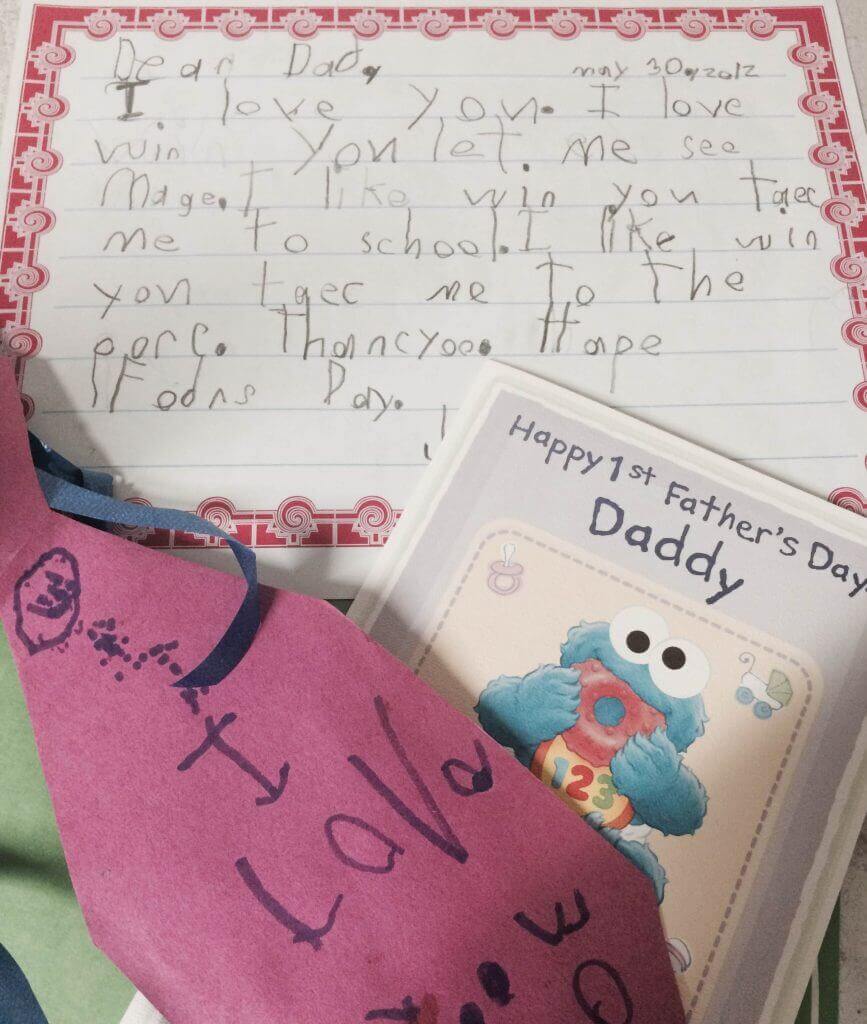 Dear Dad,
may 30, 2012
I love you. I love
win you let. me see
Mage. I like win you taec
me to school. I like win
you taec me to the
parc. Thancyoo. Hape
Fodrs Day.
Happy 1st Father's Day,
Daddy
123
I
LaVa